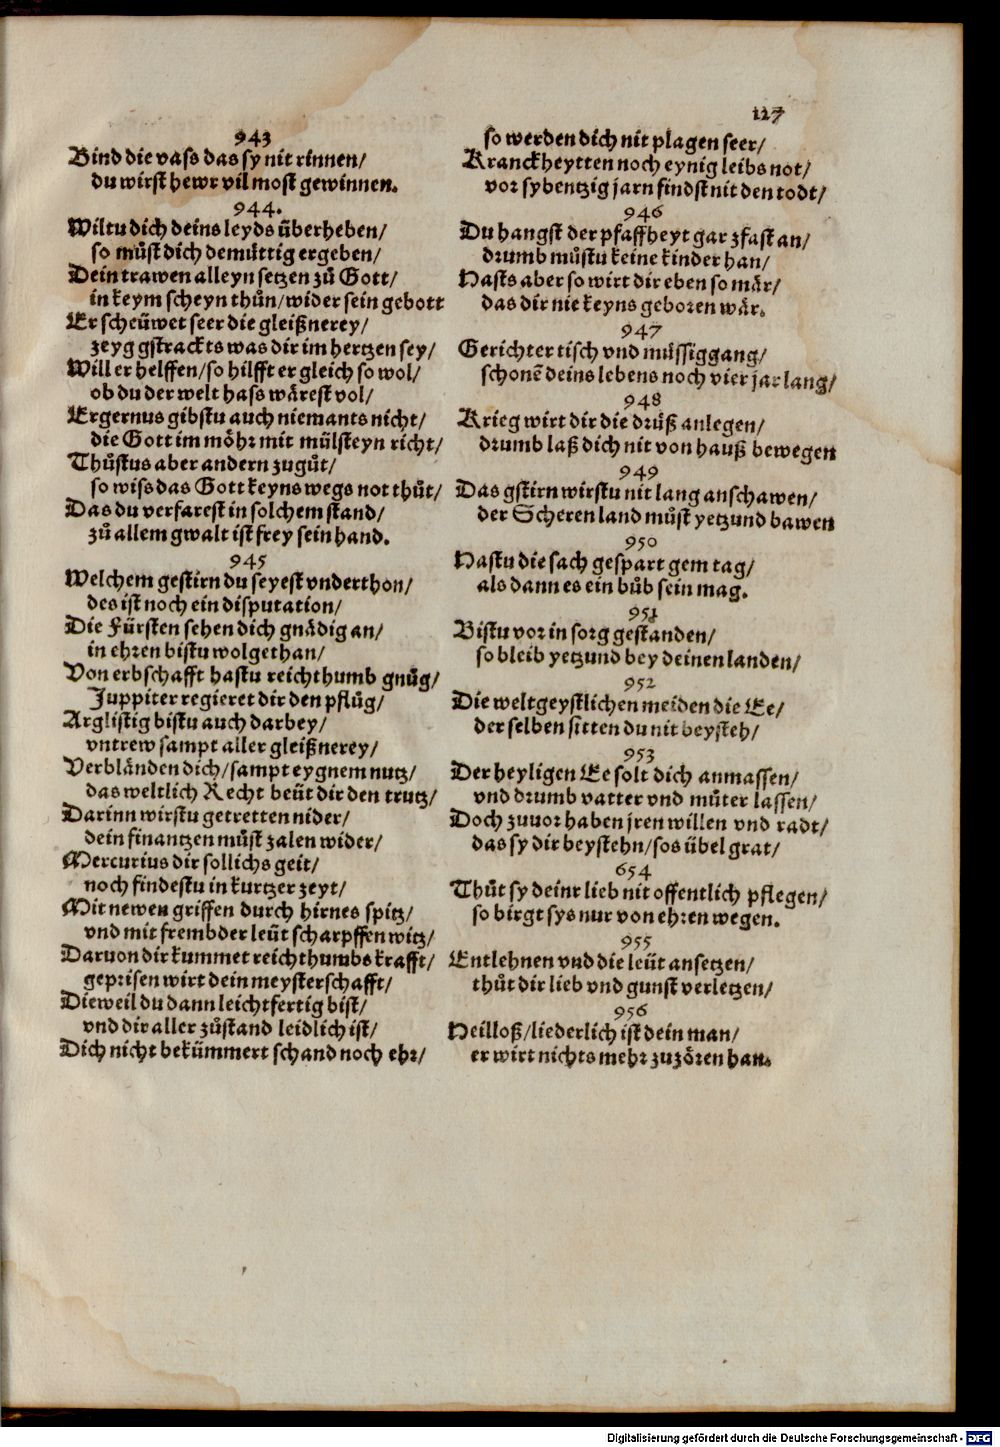 127
943
Bind die vass das sy nit rinnen/
du wirst hewr vil most gewinnen.
944.
Wiltu dich deins leyds überheben/
so můst dich demüttig ergeben/
Dein trawen alleyn setzen zů Gott/
in keym scheyn thůn/wider sein gebott
Er scheüwet seer die gleißnerey/
zeyg gstrackts was dir im hertzen sey/
Will er helffen/so hilfft er gleich so wol/
ob du der welt hass wärest vol/
Ergernus gibstu auch niemants nicht/
die Gott im möhr mit mülsteyn richt/
Thůstus aber andern zugůt/
so wiss das Gott keyns wegs not thůt/
Das du verfarest in solchem stand/
zů allem gwalt ist frey sein hand.
945
Welchem gestirn du seyest vnderthon/
des ist noch ein disputation/
Die Fürsten sehen dich gnädig an/
in ehren bistu wolgethan/
Von erbschafft hastu reichthumb gnůg/
Juppiter regieret dir den pflůg/
Arglistig bistu auch darbey/
vntrew sampt aller gleißnerey/
Verbländen dich/sampt eygnem nutz/
das weltlich Recht beüt dir den trutz/
Darinn wirstu getretten nider/
dein finantzen můst zalen wider/
Mercurius dir sollichs geit/
noch findestu in kurtzer zeyt/
Mit newen griffen durch hirnes spitz/
vnd mit frembder leüt scharpffen witz/
Daruon dir kummet reichthumbs krafft/
geprisen wirt dein meysterschafft/
Dieweil du dann leichtfertig bist/
vnd dir aller zůstand leidlich ist/
Dich nicht bekümmert schand noch ehr/
so werden dich nit plagen seer/
Kranckheytten noch eynig leibs not/
vor sybentzig jarn findst nit den todt/
946
Du hangst der pfaffheyt gar zfast an/
drumb můstu keine kinder han/
Hasts aber so wirt dir eben so mär/
das dir nie keyns geboren wär.
947
Gerichter tisch vnd müssiggang/
schonē deins lebens noch vier jar lang/
948
Krieg wirt dir die drüß anlegen/
drumb laß dich nit von hauß bewegen
949
Das gstirn wirstu nit lang anschawen/
der Scheren land můst yetzund bawen
950
Hastu die sach gespart gem tag/
als dann es ein bůb sein mag.
951
Bistu vor in sorg gestanden/
so bleib yetzund bey deinen landen/
952
Die weltgeystlichen meiden die Ee/
der selben sitten du nit beysteh/
953
Der heyligen Ee solt dich anmassen/
vnd drumb vatter vnd můter lassen/
Doch zuuor haben jren willen vnd radt/
das sy dir beystehn/sos übel grat/
654
Thůt sy deinr lieb nit offentlich pflegen/
so birgt sys nur von ehren wegen.
955
Entlehnen vnd die leüt ansetzen/
thůt dir lieb vnd gunst verletzen/
956
Heilloß/liederlich ist dein man/
er wirt nichts mehr zuzören han.
Digitalisierung gefördert durch die Deutsche Forschungsgemeinschaft - DFG